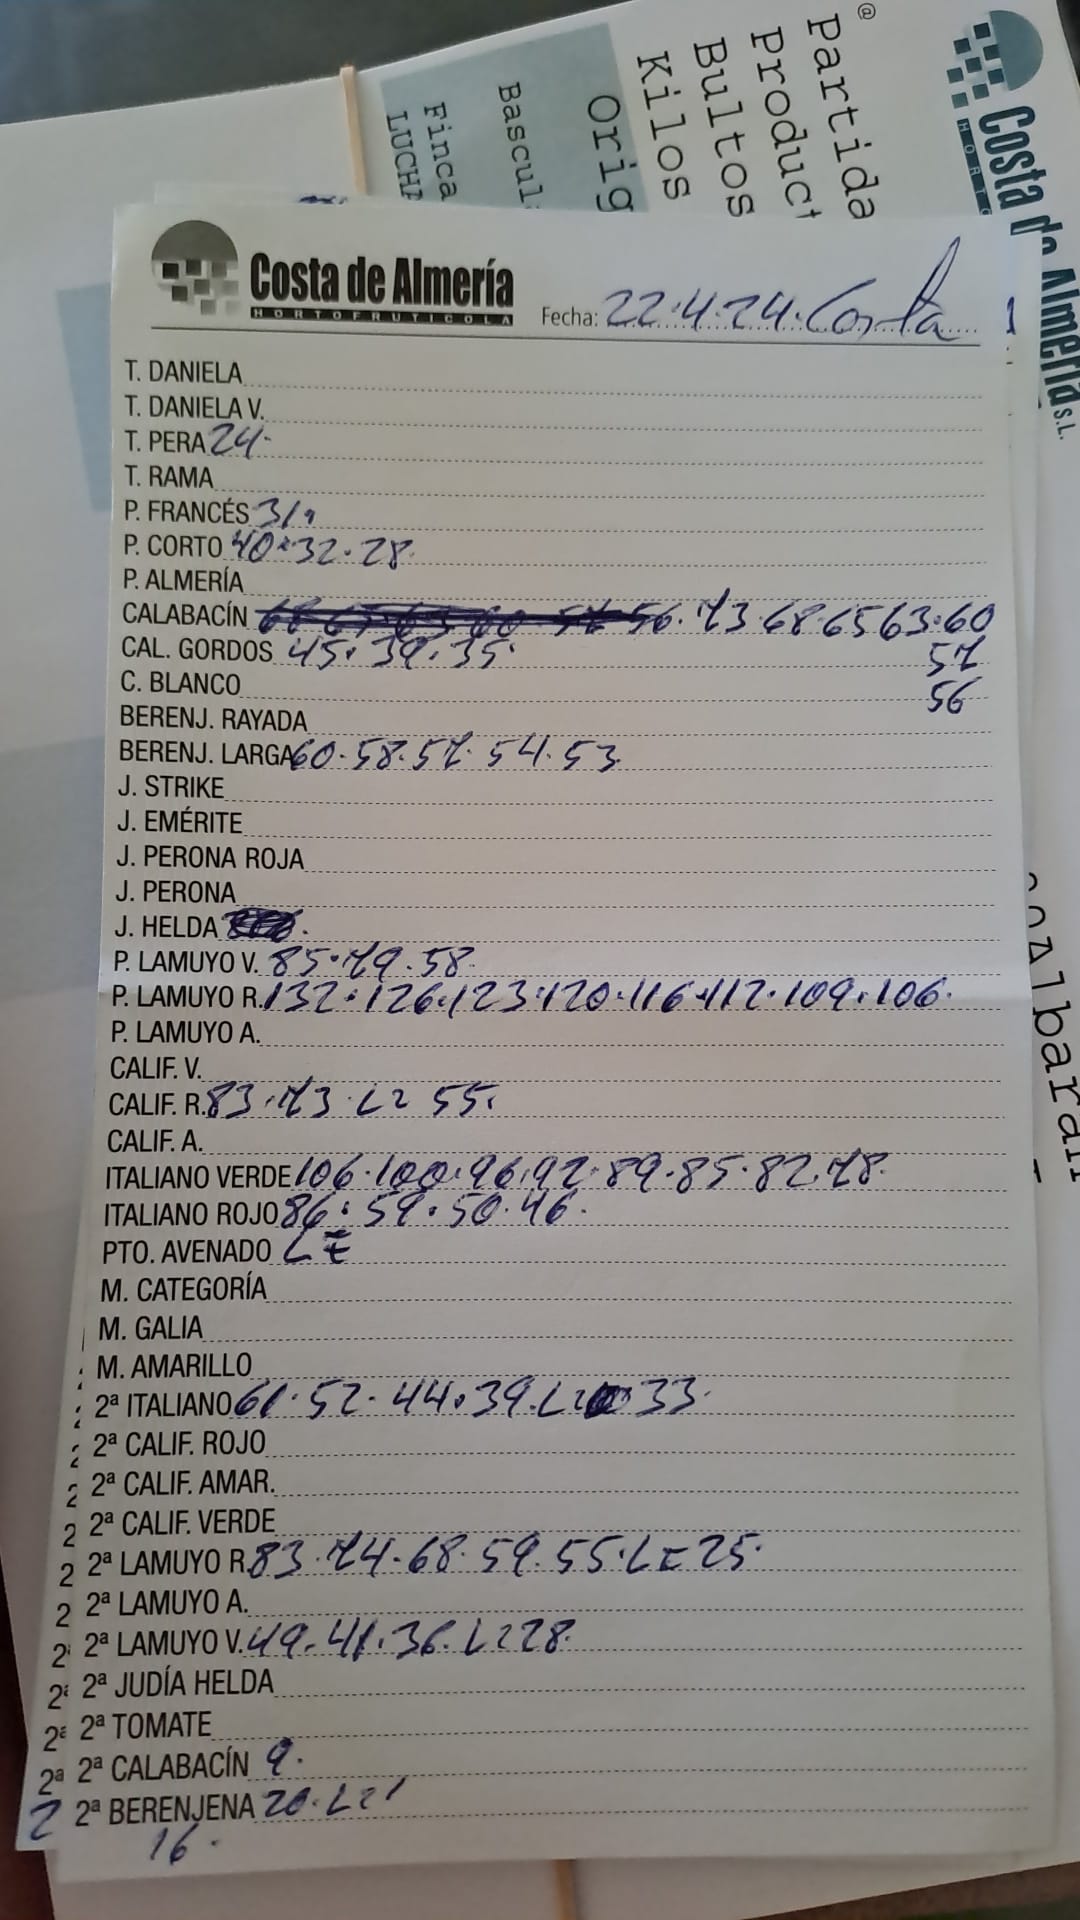 @
Partida
Product
Bultos
Kilos
Orig
Bascul
Finca
LUCHA
Costa de Almería S.L.
HORTO
Albarán
Costa de Almería
HORTOFRUTICOLA
Fecha: 22.4.24. Costa
T. DANIELA
T. DANIELA V.
T. PERA 24.
T. RAMA
P. FRANCÉS
P. CORTO 40.32.28.
P. ALMERÍA
CALABACÍN 56.73.68.65 63.60
57
56
CAL. GORDOS 45.39.35.
C. BLANCO
BERENJ. RAYADA
BERENJ. LARGA 60.58.57.54.53.
J. STRIKE
J. EMÉRITE
J. PERONA ROJA
J. PERONA
J. HELDA
P. LAMUYO V. 85.79.58.
P. LAMUYO R. 132.126.123.120.116.112.109.106.
P. LAMUYO A.
CALIF. V.
CALIF. R. 83.73.L2 55.
CALIF. A.
ITALIANO VERDE 106.100.96.92.89.85.82.78.
ITALIANO ROJO 86.59.50.46.
PTO. AVENADO
M. CATEGORÍA
M. GALIA
M. AMARILLO
2ª ITALIANO 61.52.44.39. 33.
2ª CALIF. ROJO
2ª CALIF. AMAR.
2ª CALIF. VERDE
2ª LAMUYO R. 83.74.68.59.55. 25.
2ª LAMUYO A.
2ª LAMUYO V. 49.41.36. 28.
2ª JUDÍA HELDA
2ª TOMATE
2ª CALABACÍN 9.
2ª BERENJENA 20.
16.